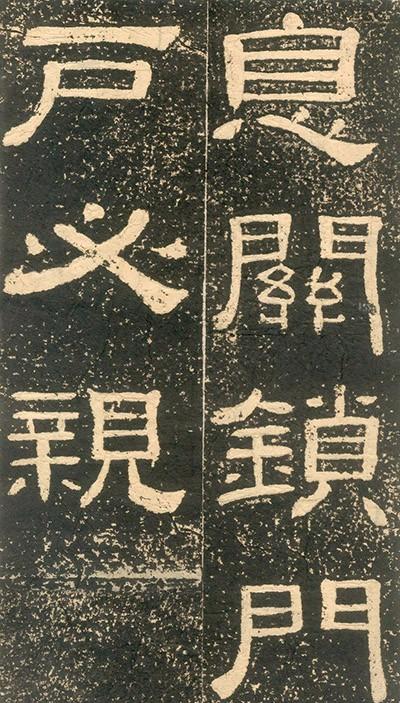 息關鎖門
戶必親